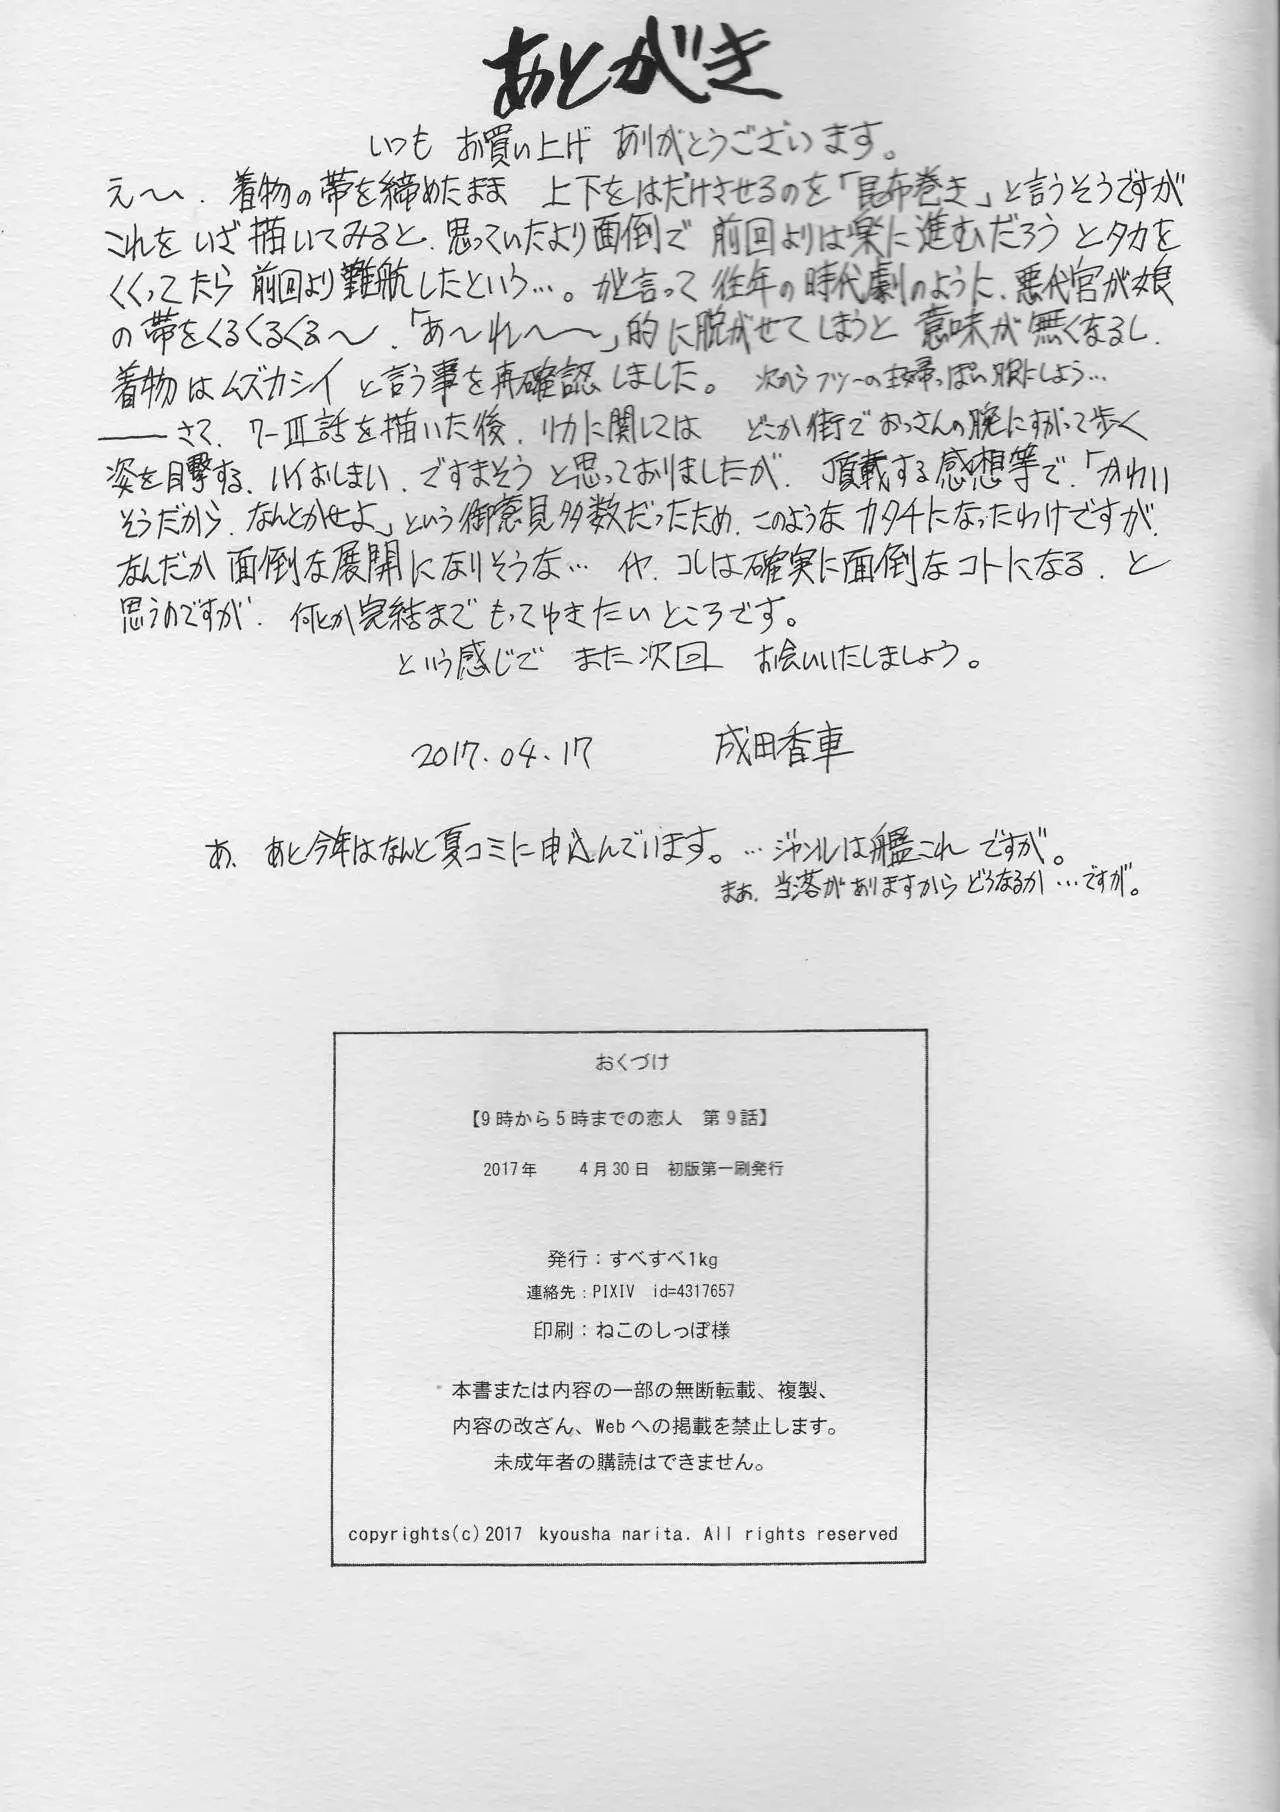 あとがき
いつも お買い上げ ありがとうございます。
え〜、着物の帯を締めたまま 上下をはだけさせるのを「昆布巻き」と言うそうですが
これを いざ描いてみると、思っていたより面倒で 前回よりは楽に進むだろうとタカを
くくってたら 前回より難航したという…。かと言って 往年の時代劇のように、悪代官が娘
の帯をくるくるくる〜、「あ〜れ〜〜」的に脱がせてしまうと 意味が無くなるし、
着物はムズカシイ と言う事を再確認しました。 次からフツーの主婦っぽい服にしよう…
―――さて、7-Ⅲ話を描いた後、リカに関しては どこか街でおっさんの腕にすがって歩く
姿を目撃する、ハイおしまい、ですまそうと思っておりましたが、頂載する感想等で、「かわい
そうだから、なんとかせよ」という御意見多数だったため、このようなカタチになったわけですが、
なんだか面倒な展開になりそうな… イヤ、コレは確実に面倒なコトになる、と
思うのですが、何とか完結までもってゆきたいところです。
という感じで また次回 お会いいたしましょう。
2017.04.17 成田香車
あ、あと今年はなんと夏コミに申込んでいます。…ジャンルは艦これ ですが。
まあ、当落がありますから どうなるか…ですが。
おくづけ
【9時から5時までの恋人 第9話】
2017年 4月30日 初版第一刷発行
発行：すべすべ1kg
連絡先：PIXIV id=4317657
印刷：ねこのしっぽ様
本書または内容の一部の無断転載、複製、
内容の改ざん、Webへの掲載を禁止します。
未成年者の購読はできません。
copyrights(c)2017 kyousha narita. All rights reserved